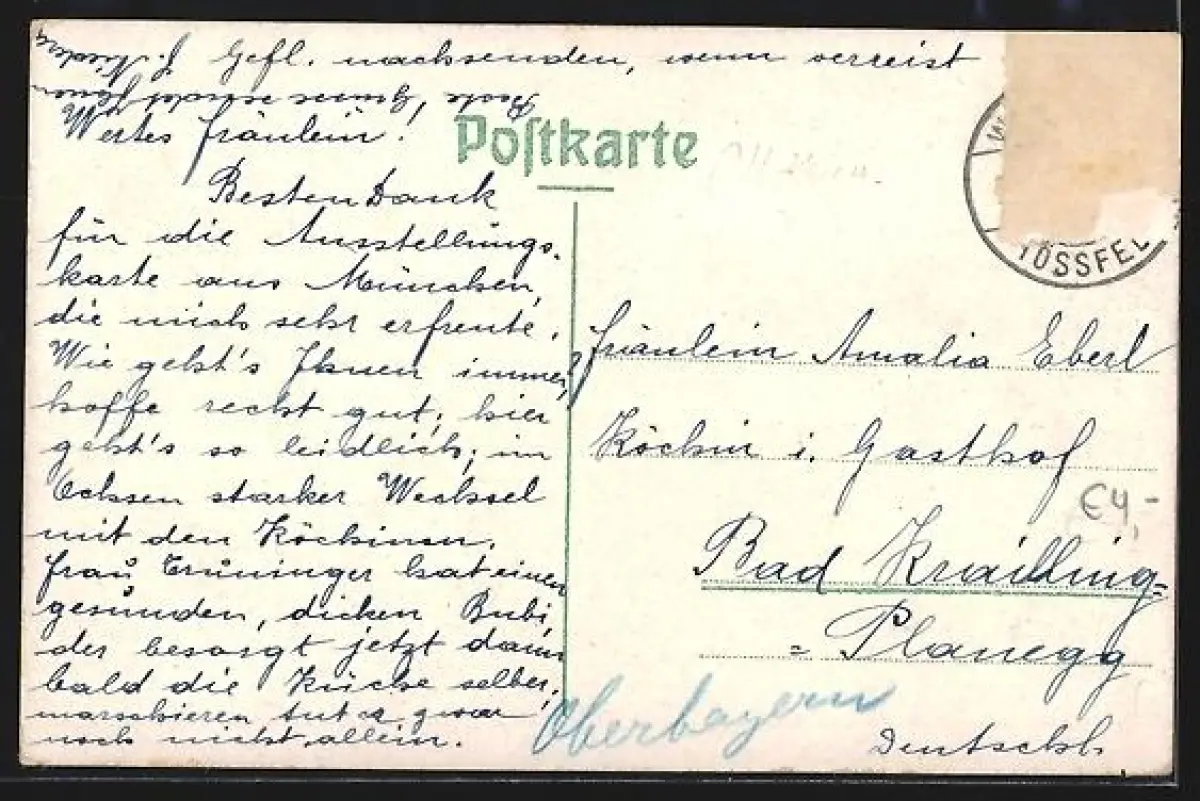 Gefl. nachsenden, wenn verreist
Wertes Fräulein!
Postkarte
Besten Dank
für die Ausstellungs-
karte aus München,
die mich sehr erfreute.
Wie geht's Ihnen immer,
hoffe recht gut; hier
geht's so leidlich; im
Ochsen starker Wechsel
mit den Köchinnen.
Frau hat einen
gesunden, dicken Bubi,
der besorgt jetzt dann
bald die Küche selber,
marschieren tut er zwar
noch nicht allein.
Beste Grüsse sendet
TÖSSFEL
Fräulein Amalia Eberl
Köchin i. Gasthof
Bad Krailling-
= Planegg
Oberbayern
Deutschl.
€4,-